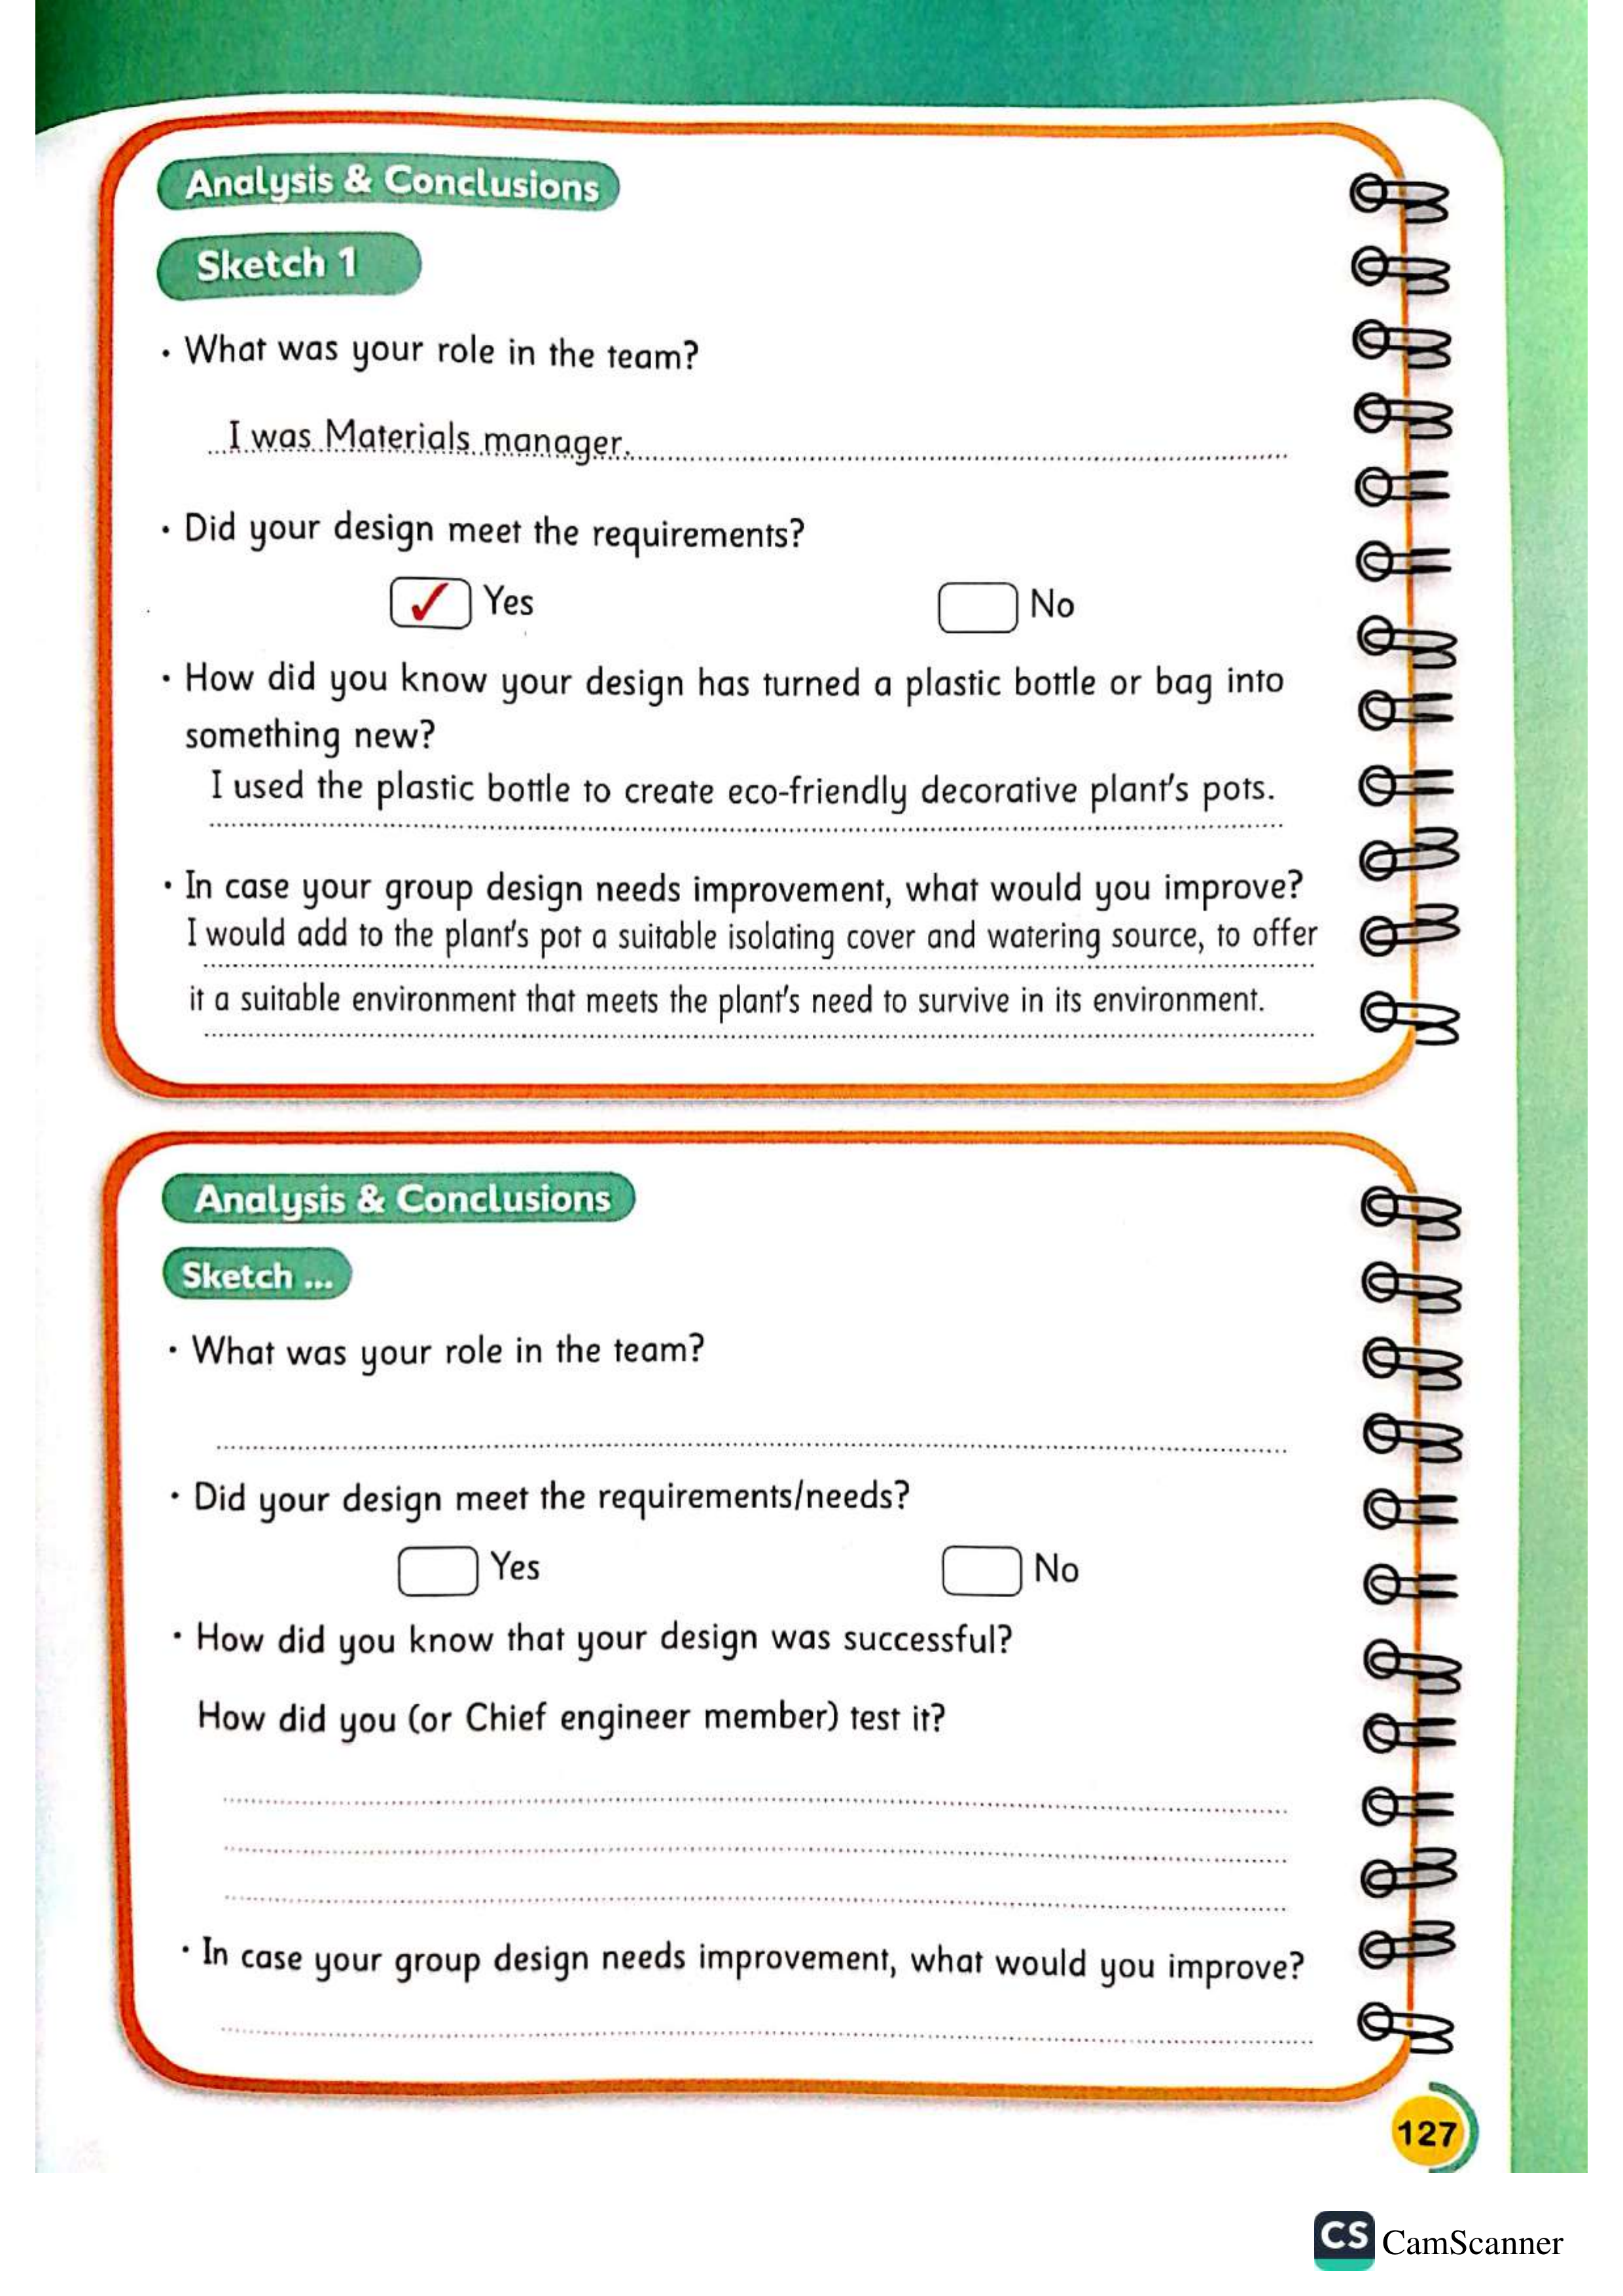 Analysis & Conclusions
Sketch 1
• What was your role in the team?
I was Materials manager.
• Did your design meet the requirements?
✓ Yes No
• How did you know your design has turned a plastic bottle or bag into
something new?
I used the plastic bottle to create eco-friendly decorative plant's pots.
• In case your group design needs improvement, what would you improve?
I would add to the plant's pot a suitable isolating cover and watering source, to offer
it a suitable environment that meets the plant's need to survive in its environment.
Analysis & Conclusions
Sketch ...
• What was your role in the team?
• Did your design meet the requirements/needs?
Yes No
• How did you know that your design was successful?
How did you (or Chief engineer member) test it?
• In case your group design needs improvement, what would you improve?
127
CS CamScanner